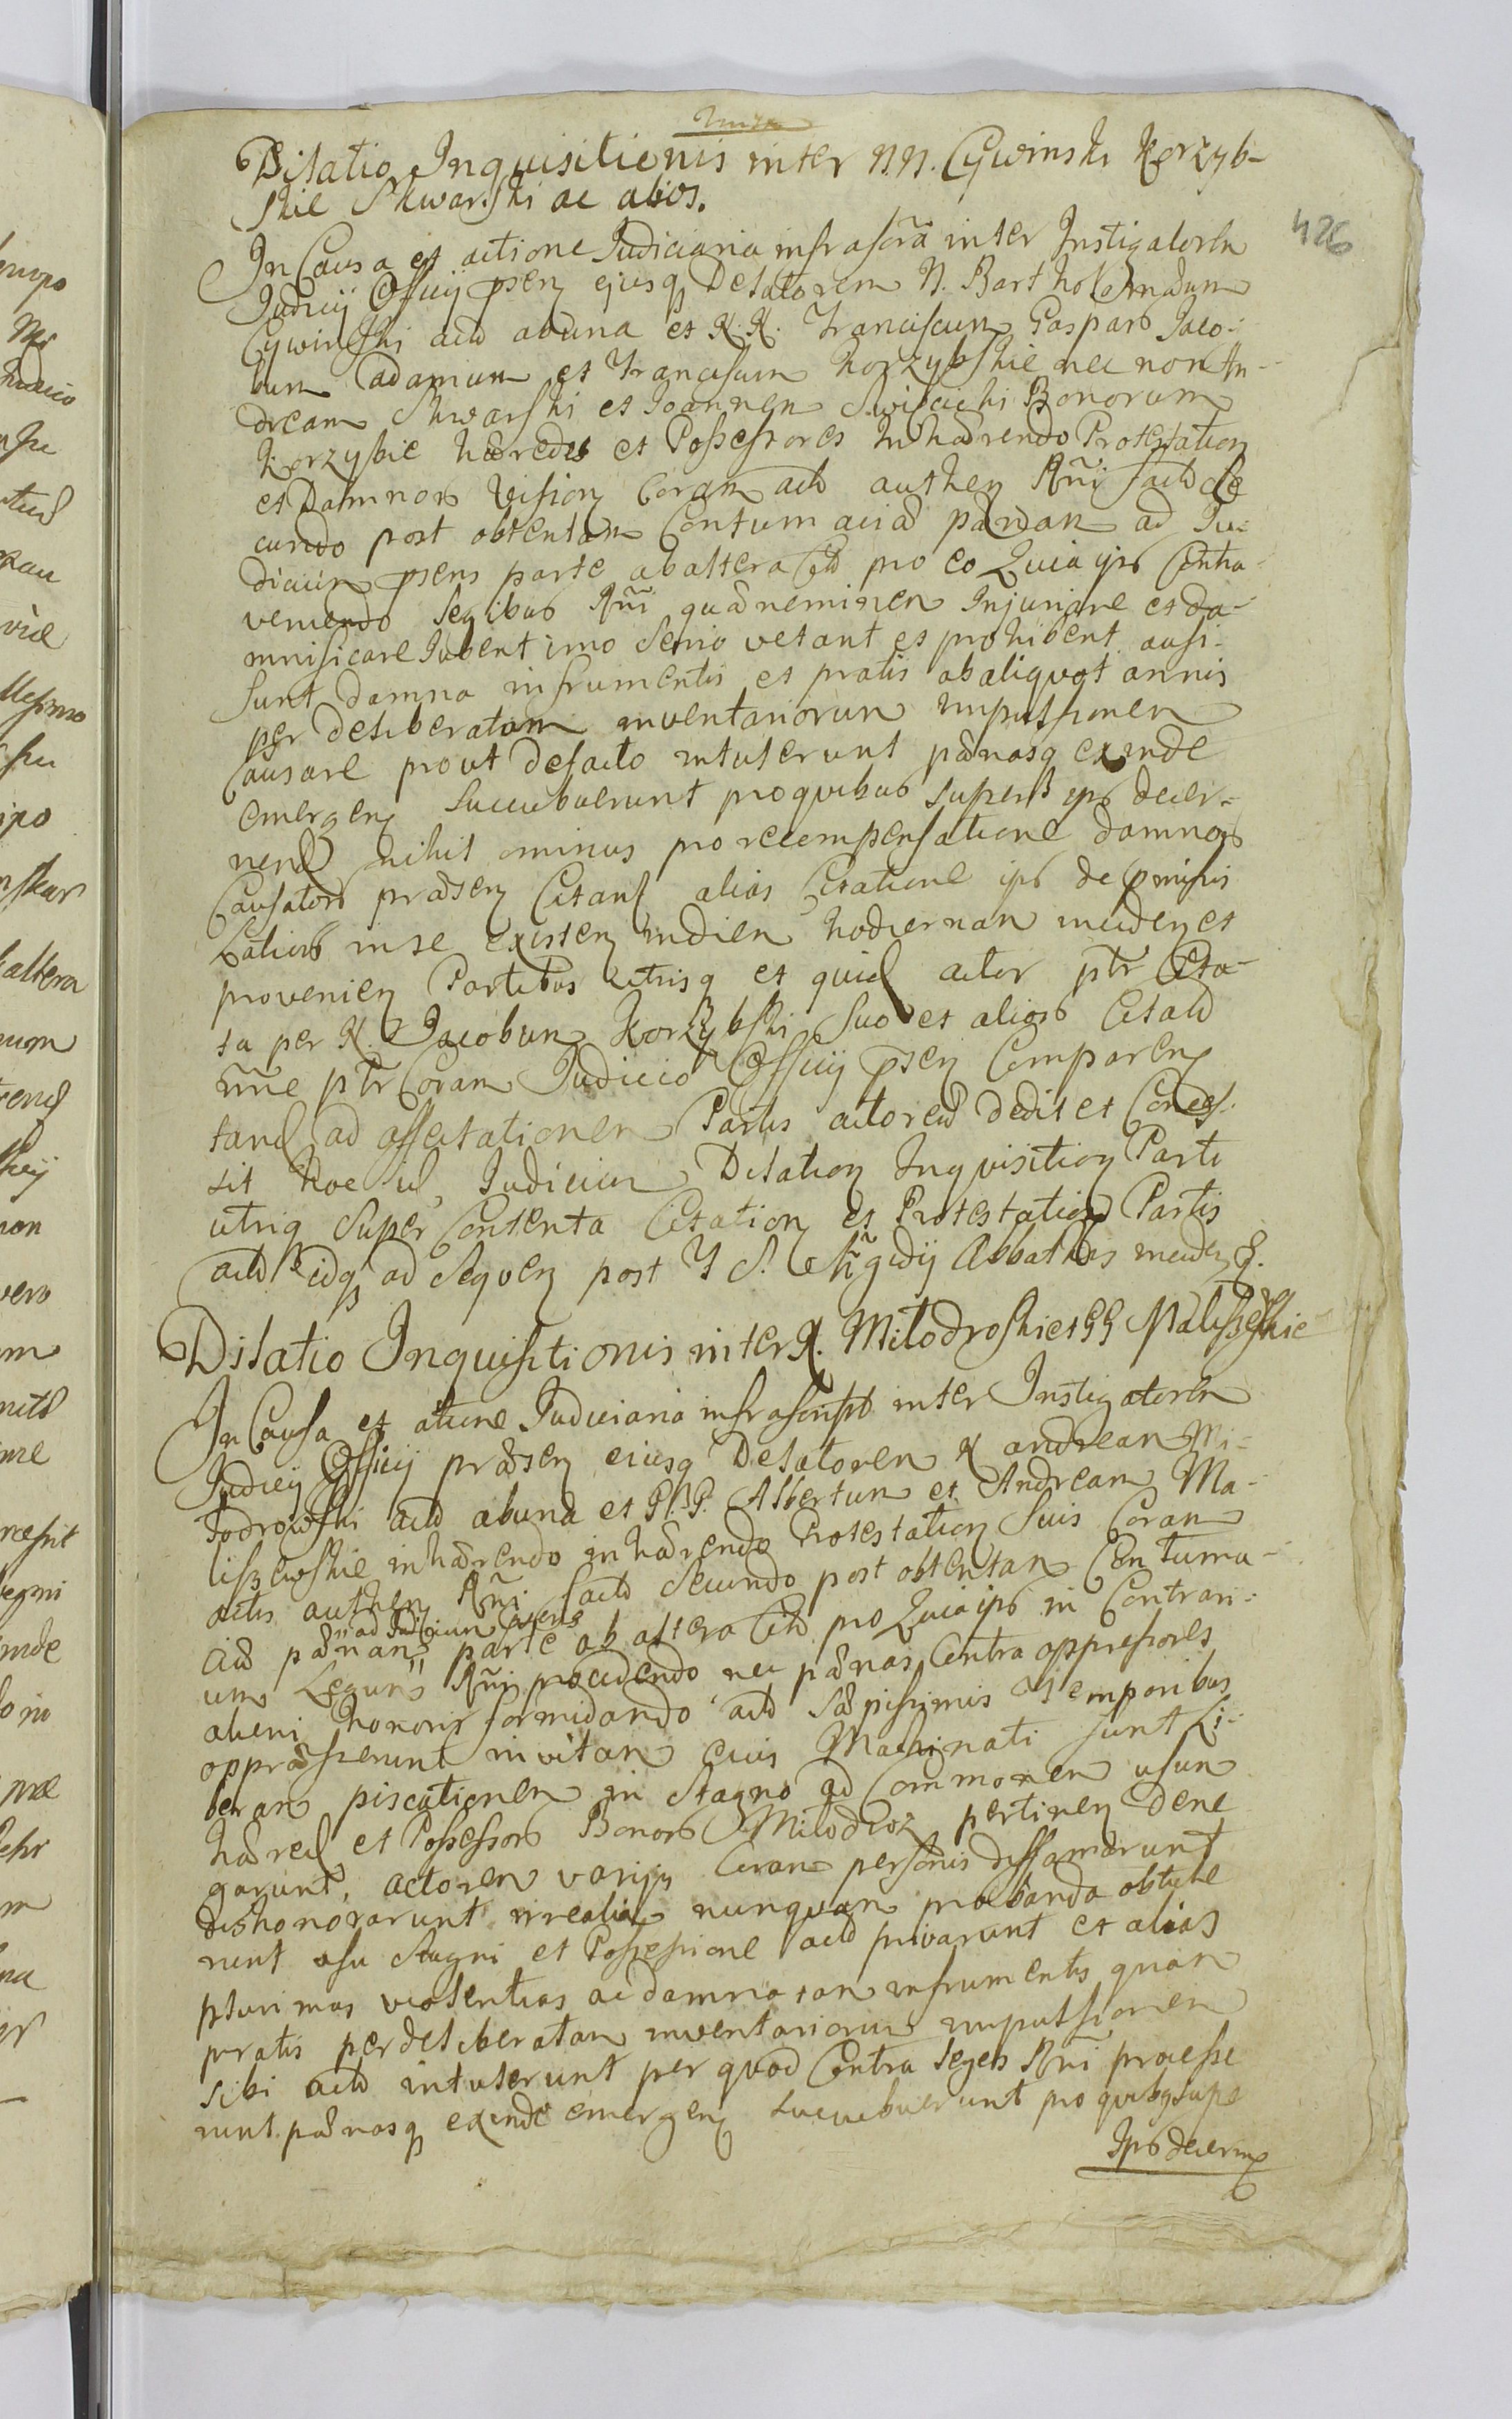 Dilatio Inquisitionis inter N.N. Cywinski Korzyb-
skie Skwarski ac alios.
426
In Causa et actione Judiciaria infrascrã inter Instigatorem
Judicij Officij psen ejusq Delatorem N. Bartholomæum
Cywinski act ab una et N.N. Franciscum Gaspar Jaco-
bum Adamum et Franciscum Korzybskie nec non An-
dream Skwarski et Joannem Swiecicki Bonorum
Korzybie hæredes et Possessores Inhærendo Protestation
et Damnor Vision Coram act authen Rñi fact se
cundo post obtentam Contumacia pænam ad Ju-
dicium psens parte ab altera Cit pro eo Quia ips Contra-
veniendo legibus Rñi quæ neminem Injuriare et da-
mnificare Jubent imo serio vetant et prohibent ausi
sunt damna in frumentis et pratis ab aliquot annis
per deliberatam inventariorum impulsionem
Causare prout de facto intulerunt pænasq exinde
emergen succubuerunt pro quibus super ips decer-
nend nihil ominus pro recompensatione damnor
Causator præsen Citant alias Citatione ips de præmissis
latior in se existen in diem hodiernam inciden et
provenien Partibus utrisq et quid actor ptr Cita-
ta per N. Jacobum Korzybski suo et alior Citat
nñe ptr Coram Judicio Officij psen Comparen
tand ad affectationem Partis actorea dedit et Conces-
sit hoc id Judicium Dilation Inquisition Parti
utriq super Contenta Citation et Protestation Partis
act idq ad sequen post F S. Ægidij Abbathis inciden
Dilatio Inquisitionis inter N. Milodroskie et GG Maliszeskie
In Causa et actione Judiciaria infrascript inter Instigatorem
Judicij Officij præsen eiusq Delatorem N Andream Mi-
lodrowski act ab una et G.G. Albertum et Andream Ma-
liszewskie inhærendo inhærendo Protestation suis Coram
actis authen Rñi fact secundo post obtentam Contuma-
cia pænam "ad Judicium præsens" parte ab altera Cit pro Quia ips in Contrari-
um Legum Rñi procedendo nec pænas Contra oppressores
alieni honoris formidando act sæpissimis temporibus
oppræsserunt in vitam eius Machinati sunt Li-
beram piscationem in stagno ad Commonem usum
hæred et Possessor Bonor Milodroz pertinen dene
garunt, actorem varijs Coram personis diffamarunt
dishonorarunt irrealia nunquam probanda obtule
runt usu stagni et Possessione act privarunt et alias
plurimas violentias ac damna tam in frumentis quam
pratis per deliberatam inventariorum impulsionem
sibi act intulerunt per quod Contra leges Rñi processe
runt pænasq exinde emergen succubuerunt pro quibq supe
Ips decern